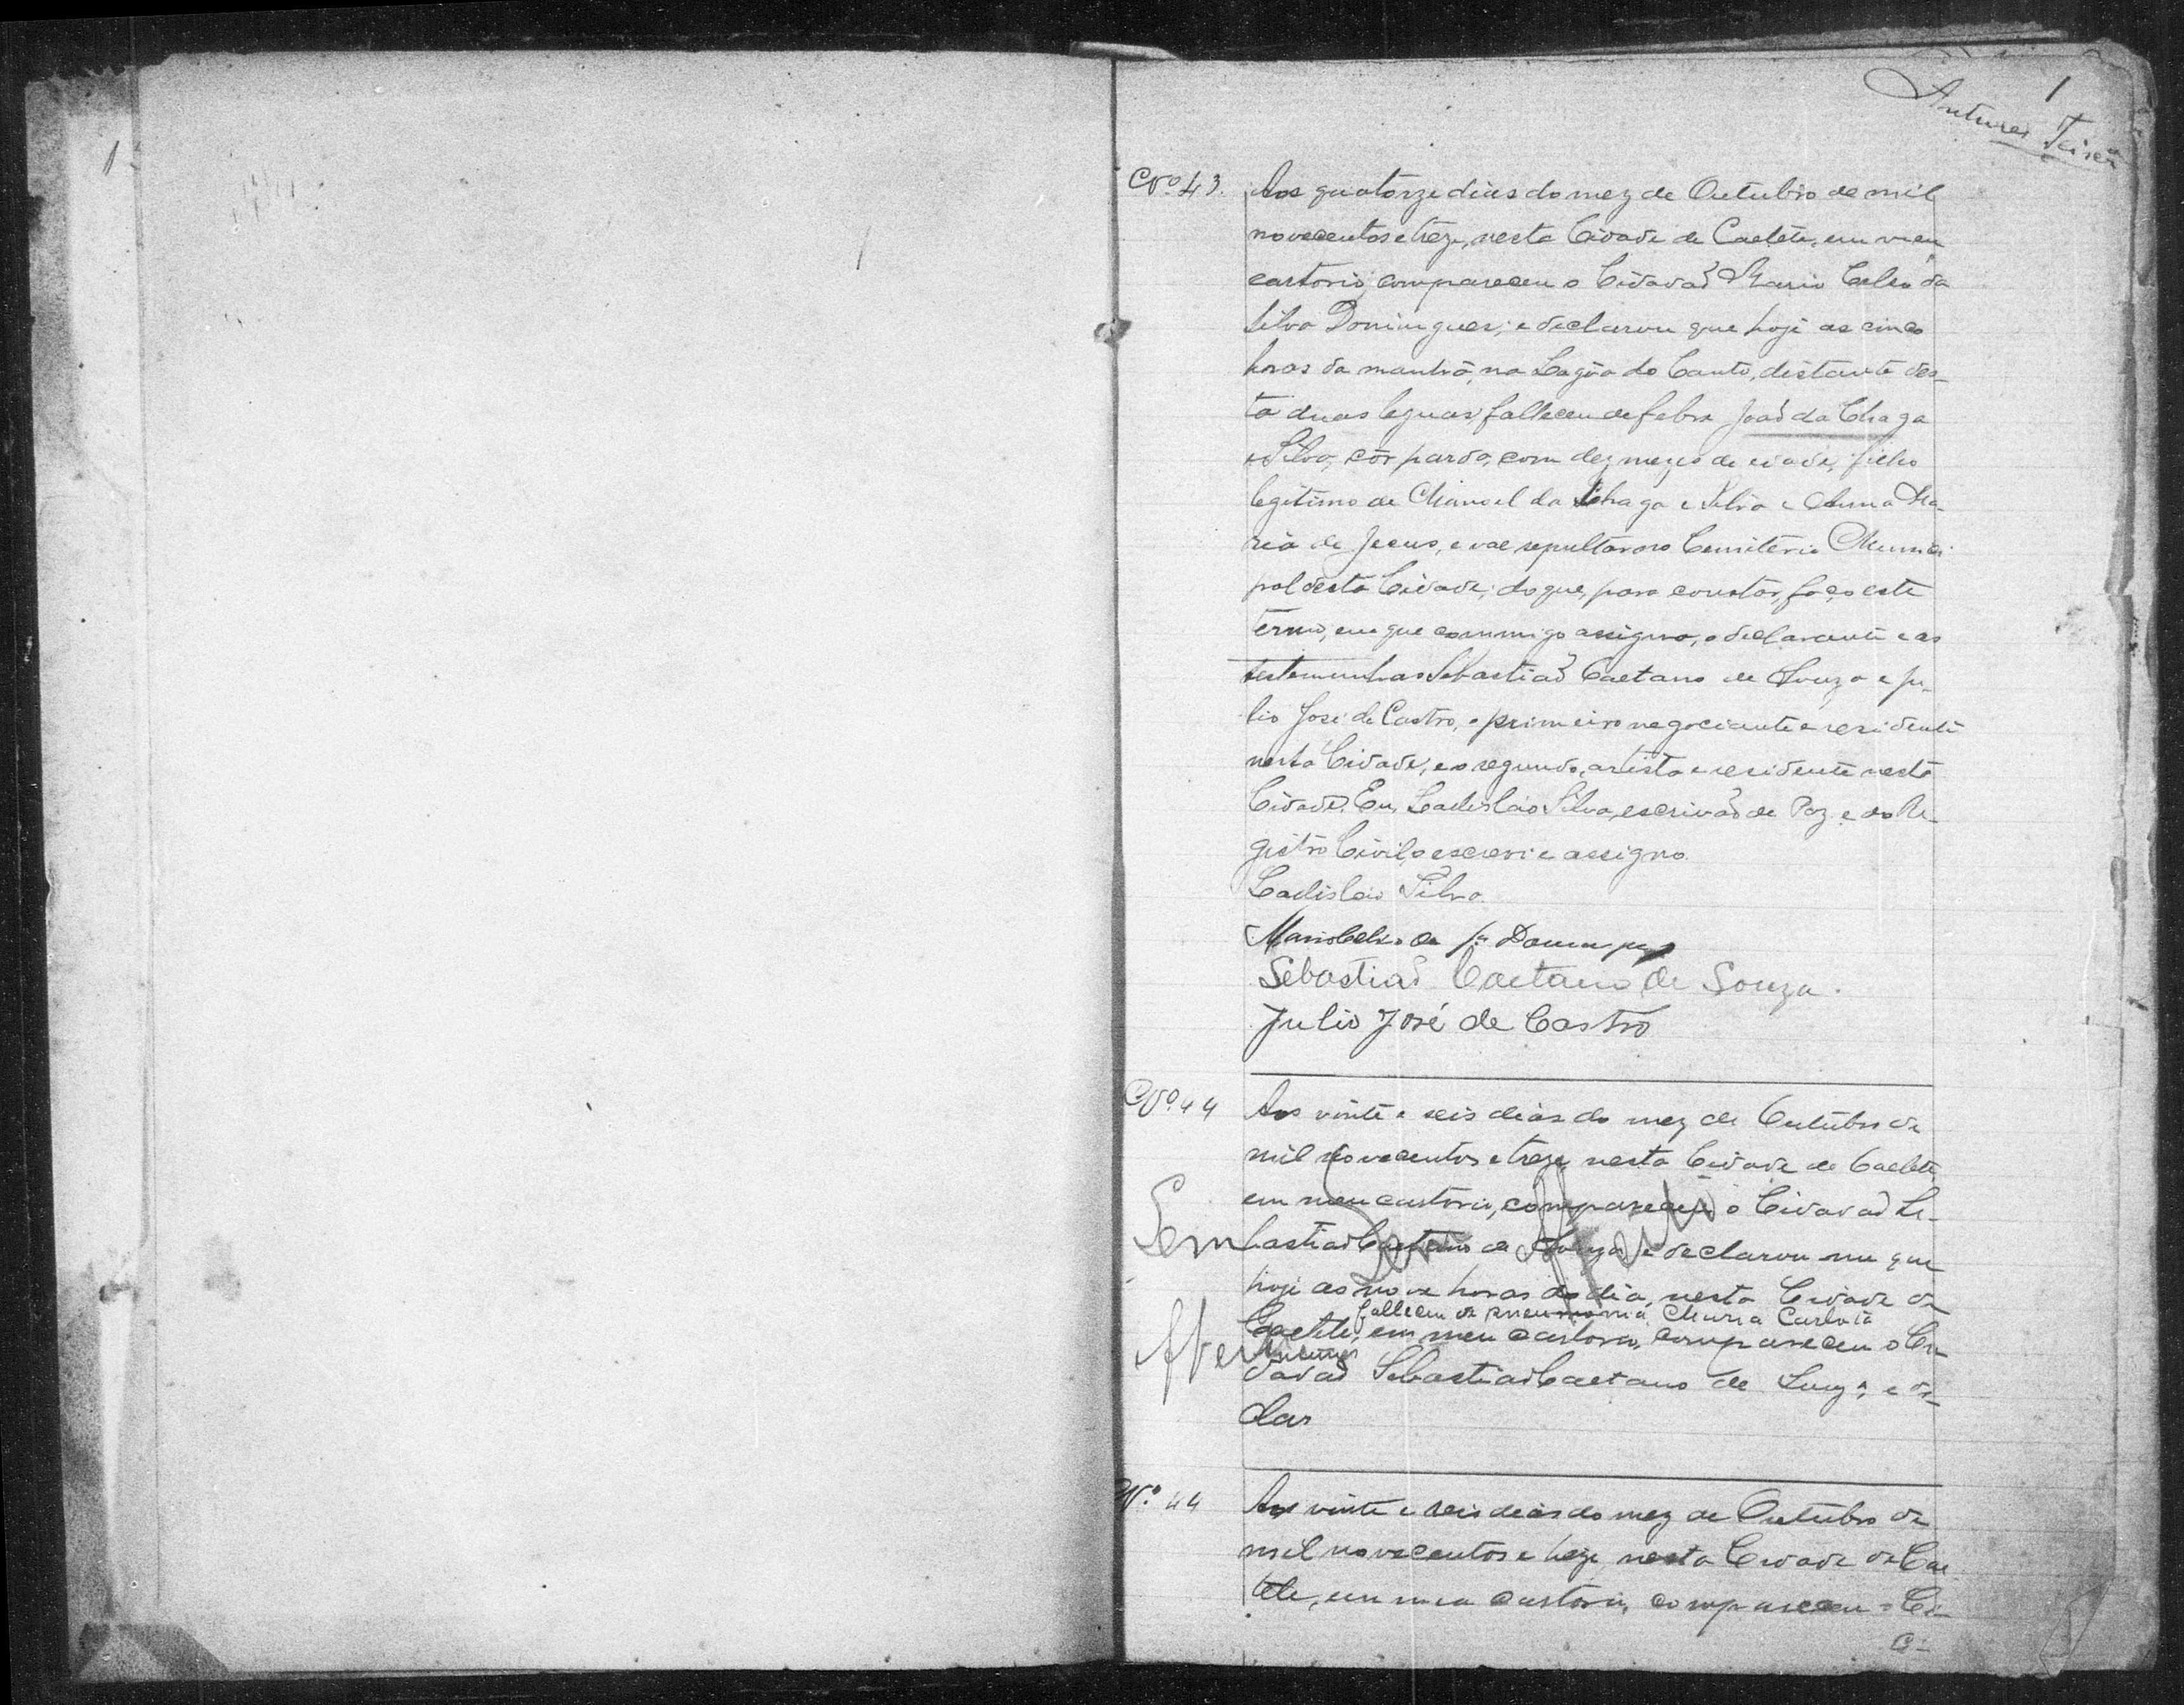 1
Antunes Teixeira
Nº 43. Aos quatorze dias do mez de Outubro de mil
novecentos e treze, nesta Cidade de Caeteté, em meu
cartorio, compareceu o Cidadaõ Mario Celso da
Silva Domingues; e declarou que hoje as cinco
horas da manhã, na Lagôa do Canto, distante des-
ta duas leguas, falleceu de febre Joaõ da Chaga
e Silva, côr parda, com dez mezes de edade, filho
legitimo de Manoel da Chaga e Silva e Anna Ma-
ria de Jesus, e vae sepultar no Cemiterio Munici-
pal desta Cidade; do que, para constar, faço este
termo, em que commigo assigna, o declarante e as
testemunhas Sebastiaõ Caetano de Souza e Ju-
lio José de Castro, o primeiro negociante e residente
nesta Cidade, e o segundo, artista e residente nesta
Cidade. Eu, Ladisláo Silva, escrivaõ de Paz e do Re-
gistro Civil, o escrevi e assigno.
Ladisláo Silva.
Mario Celso da Sª Domingues
Sebastiaõ Caetano de Souza.
Julio José de Castro
Nº 44 Aos vinte e seis dias do mez de Outubro de
mil novecentos e treze, nesta Cidade de Caeteté,
em meu cartorio, compareceu o Cidadaõ Se-
bastiaõ Caetano de Souza e declarou me que
hoje as nove horas do dia, nesta Cidade de
falleceu de pneumonia, Maria
Caeteté, em meu cartorio, compareceu o Ci-
dadaõ Sebastiaõ Caetano de Souza e de-
clar
Sem
Sem
Nº 44 Aos vinte e seis dias do mez de Outubro de
mil novecentos e treze, nesta Cidade de Cae
teté, em meu cartorio, compareceu o Ci-